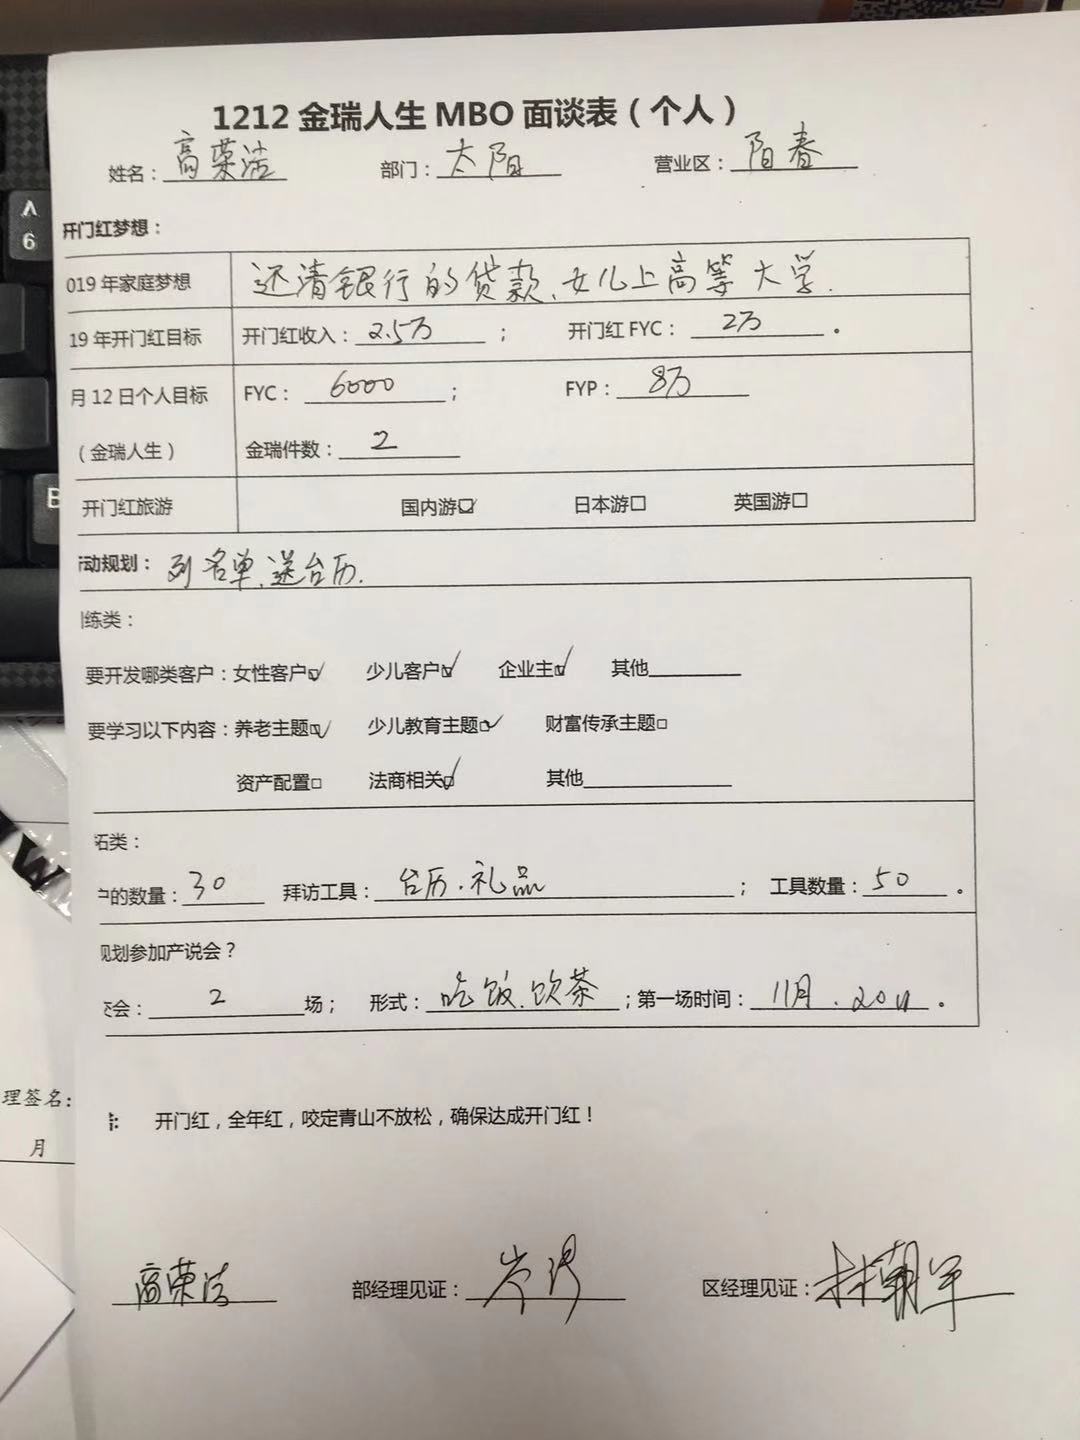 1212金瑞人生MBO面谈表（个人）
姓名：高荣洁 部门：太阳 营业区：阳春
开门红梦想：
019年家庭梦想 还清银行的贷款、女儿上高等大学.
19年开门红目标 开门红收入：2.5万； 开门红FYC：2万。
月12日个人目标 FYC：6000； FYP：8万
（金瑞人生） 金瑞件数：2
开门红旅游 国内游☑ 日本游□ 英国游□
动规划：列名单、送台历.
练类：
要开发哪类客户：女性客户☑ 少儿客户☑ 企业主☑ 其他
要学习以下内容：养老主题☑ 少儿教育主题☑ 财富传承主题□
资产配置□ 法商相关☑ 其他
拓类：
户的数量：30 拜访工具：台历.礼品； 工具数量：50。
规划参加产说会？
会：2场； 形式：吃饭.饮茶；第一场时间：11月.20。
开门红，全年红，咬定青山不放松，确保达成开门红！
高荣洁 部经理见证： 区经理见证：林朝军
理签名：
月
A
6
B
W